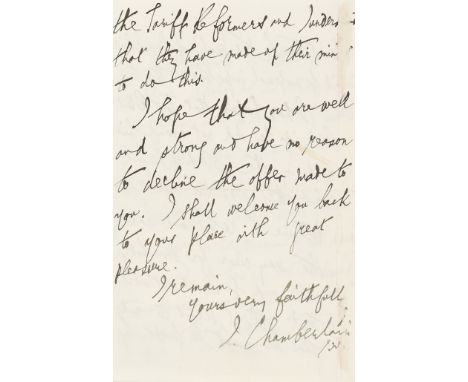 the Tariff Reformers and I unders
that they have made up their min
to do this.
I hope that you are well
and strong and have no reason
to decline the offer made to
you. I shall welcome you back
to your place with great
pleasure.
I remain,
Yours very faithfull
J. Chamberlain